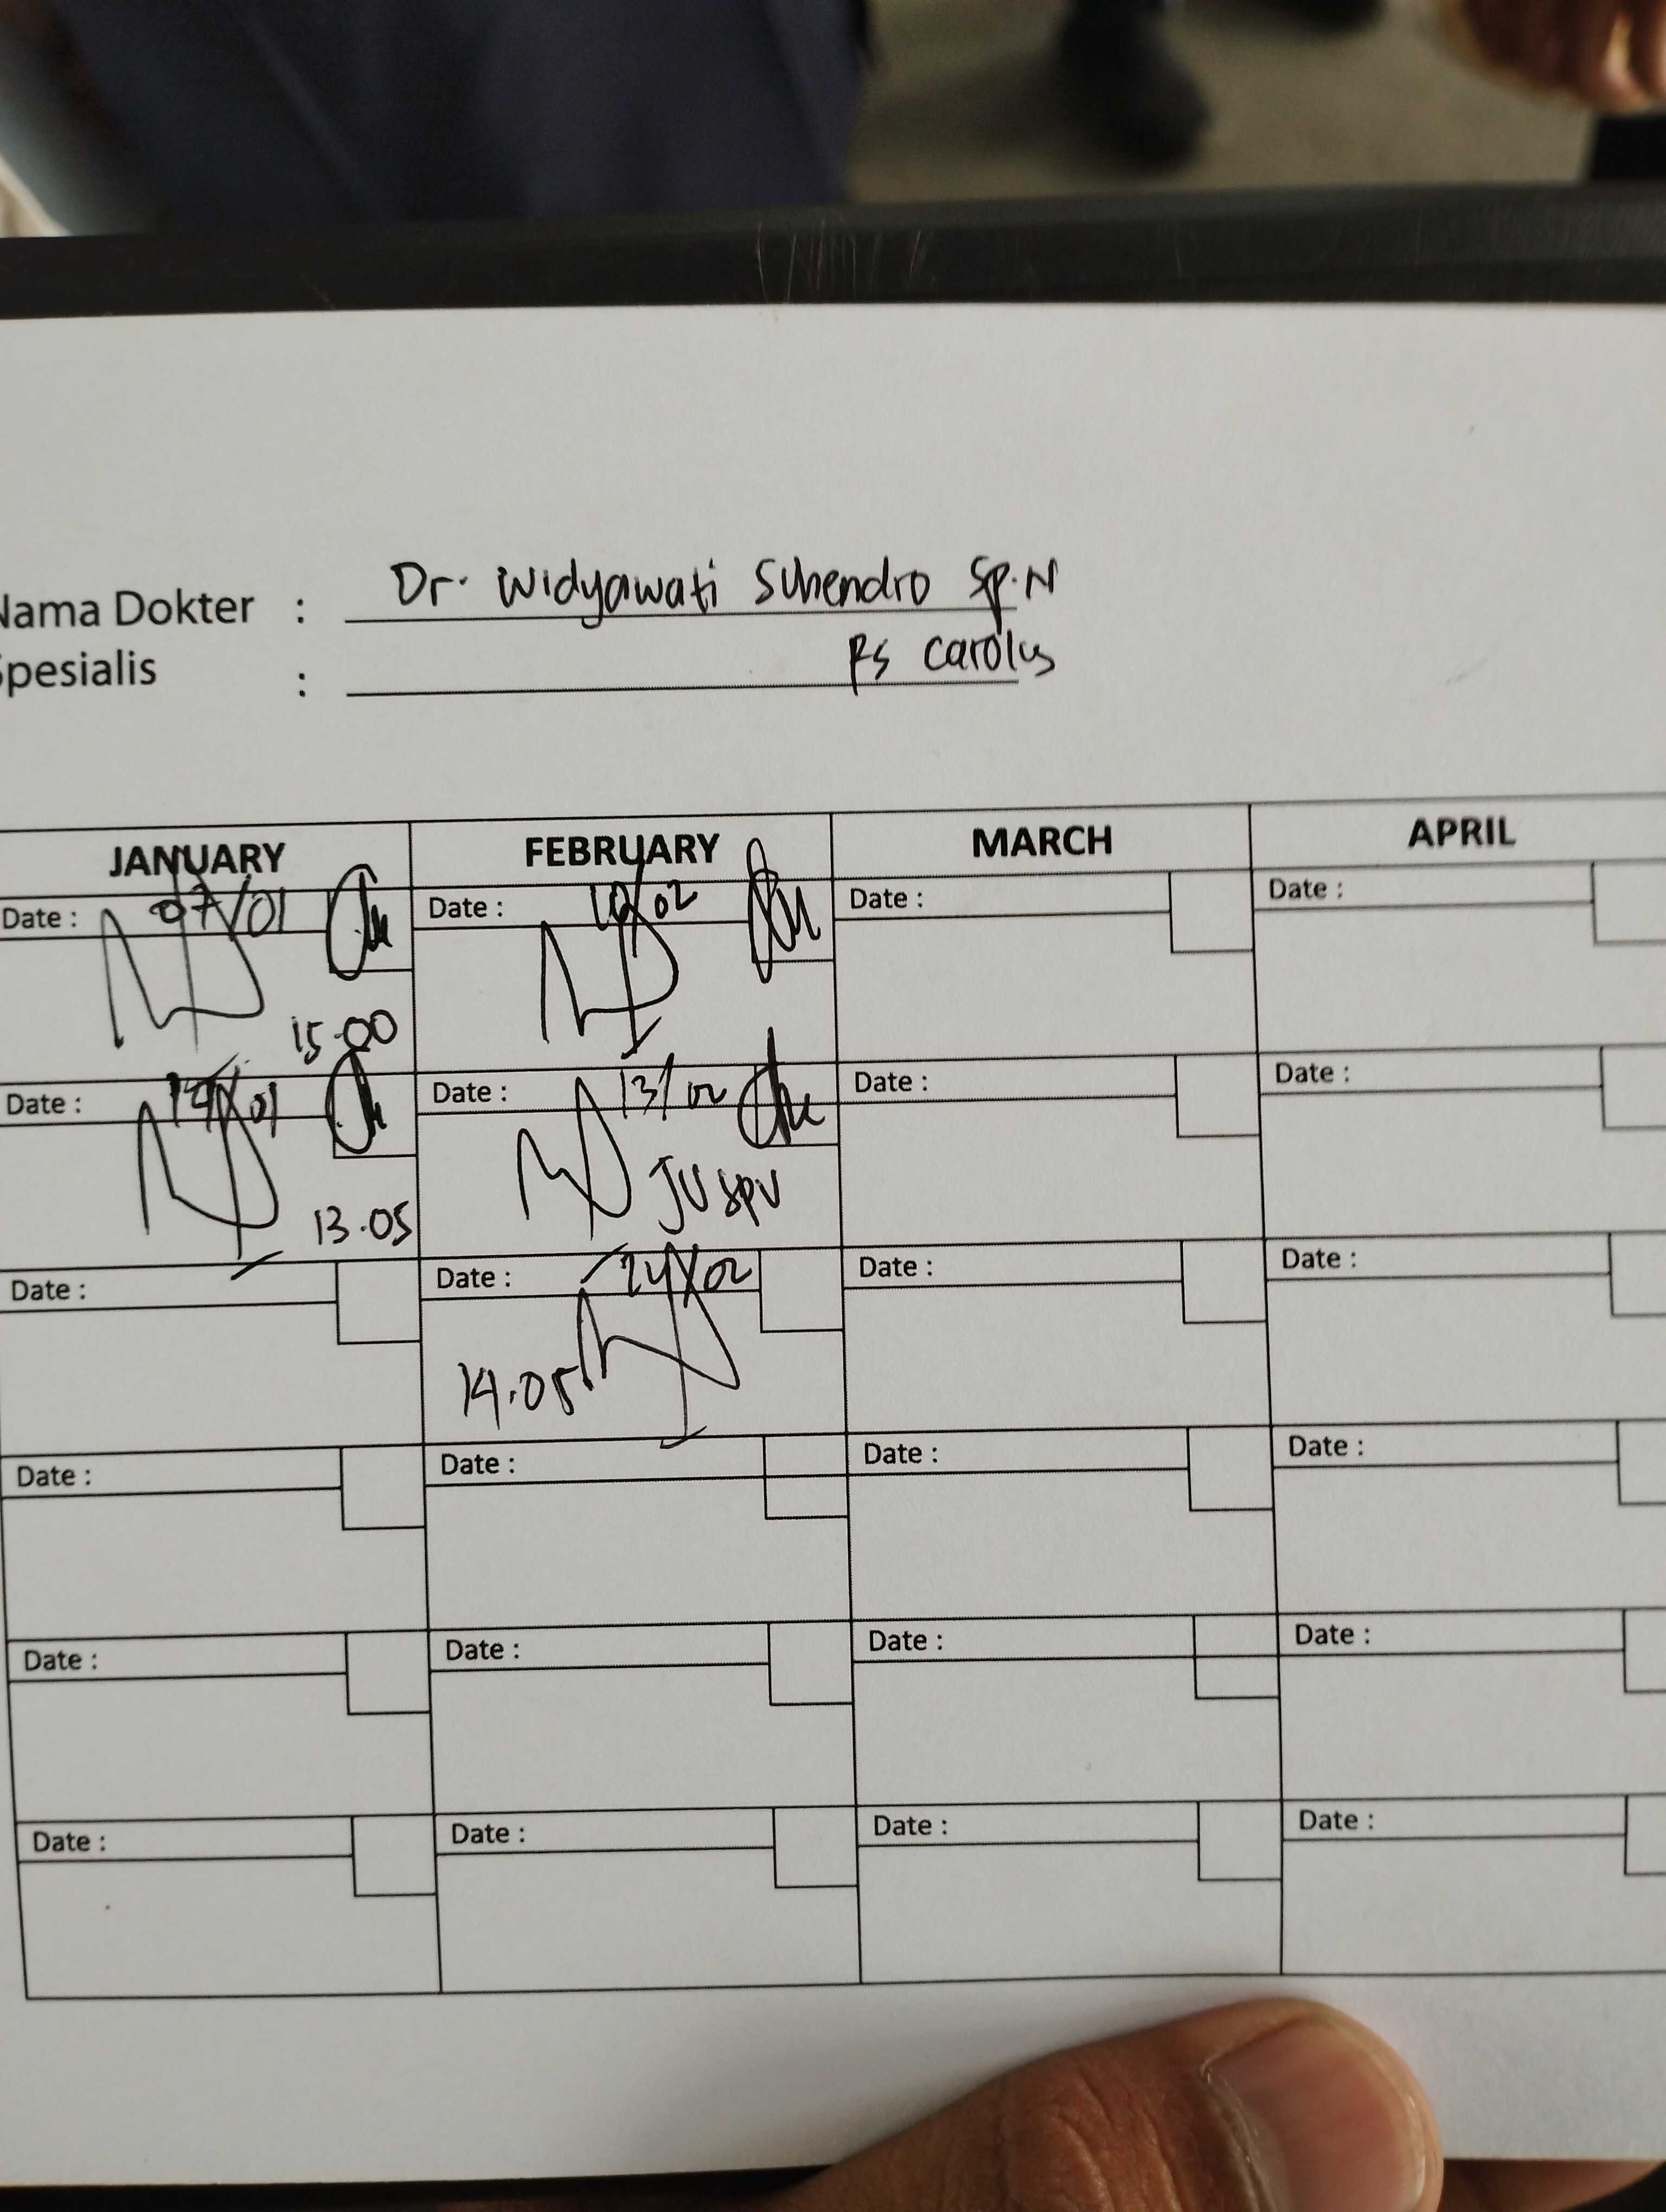 Nama Dokter : Dr. Widyawati Suhendro Sp.N
Spesialis : RS Carolus
JANUARY FEBRUARY MARCH APRIL
Date : 07/01 Date : 10/02 Date : Date :
15.00
Date : 14/01 Date : 13/02 Date : Date :
13.05 JV SPV
Date : Date : 24/02 Date : Date :
14.05
Date : Date : Date : Date :
Date : Date : Date : Date :
Date : Date : Date : Date :